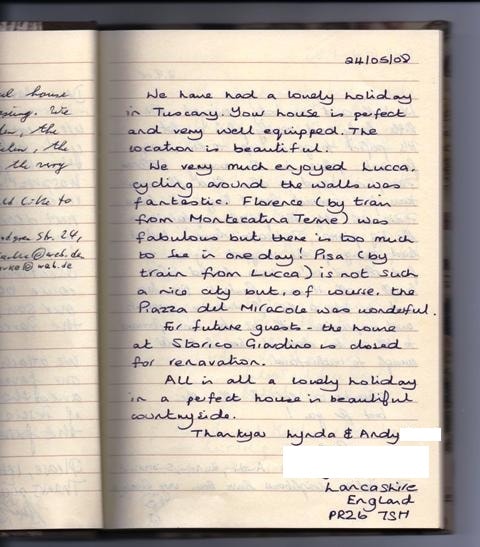 house
We
the
the
the way
like to
Str. 24,
@web.de
@web.de
24/05/08
We have had a lovely holiday
in Tuscany. Your house is perfect
and very well equipped. The
location is beautiful.
We very much enjoyed Lucca,
cycling around the walls was
fantastic. Florence (by train
from Montecatina Terme) was
fabulous but there is too much
to see in one day! Pisa (by
train from Lucca) is not such
a nice city but, of course, the
Piazza del Miracole was wonderful.
For future guests - the house
at Storico Giardino is closed
for renavation.
All in all a lovely holiday
in a perfect house in beautiful
countryside.
Thankyou Lynda & Andy
Lancashire
England
PR26 7SH